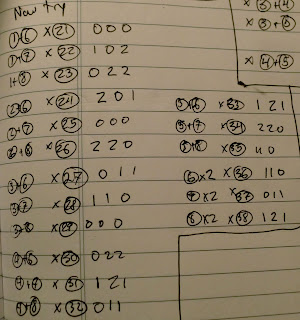 Now try
①+⑥ ×㉑ 000
①+⑦ ×㉒ 102
1+⑧ ×㉓ 022
②+⑥ ×㉔ 201
②+⑦ ×㉕ 000
②+⑧ ×㉖ 220
3+⑥ ×㉗ 011
3+⑦ ×㉘ 110
3+⑧ ×㉙ 000
4+⑥ ×㉚ 022
4+7 ×㉛ 121
4+⑧ ×㉜ 011
×③+④
×3+⑤
×④+⑤
⑤+⑥ ×㉝ 121
⑤+⑦ ×㉞ 220
⑤+⑧ ×㉟ 110
⑥×2 ×㊱ 110
⑦×2 ×㊲ 011
⑧×2 ×㊳ 121